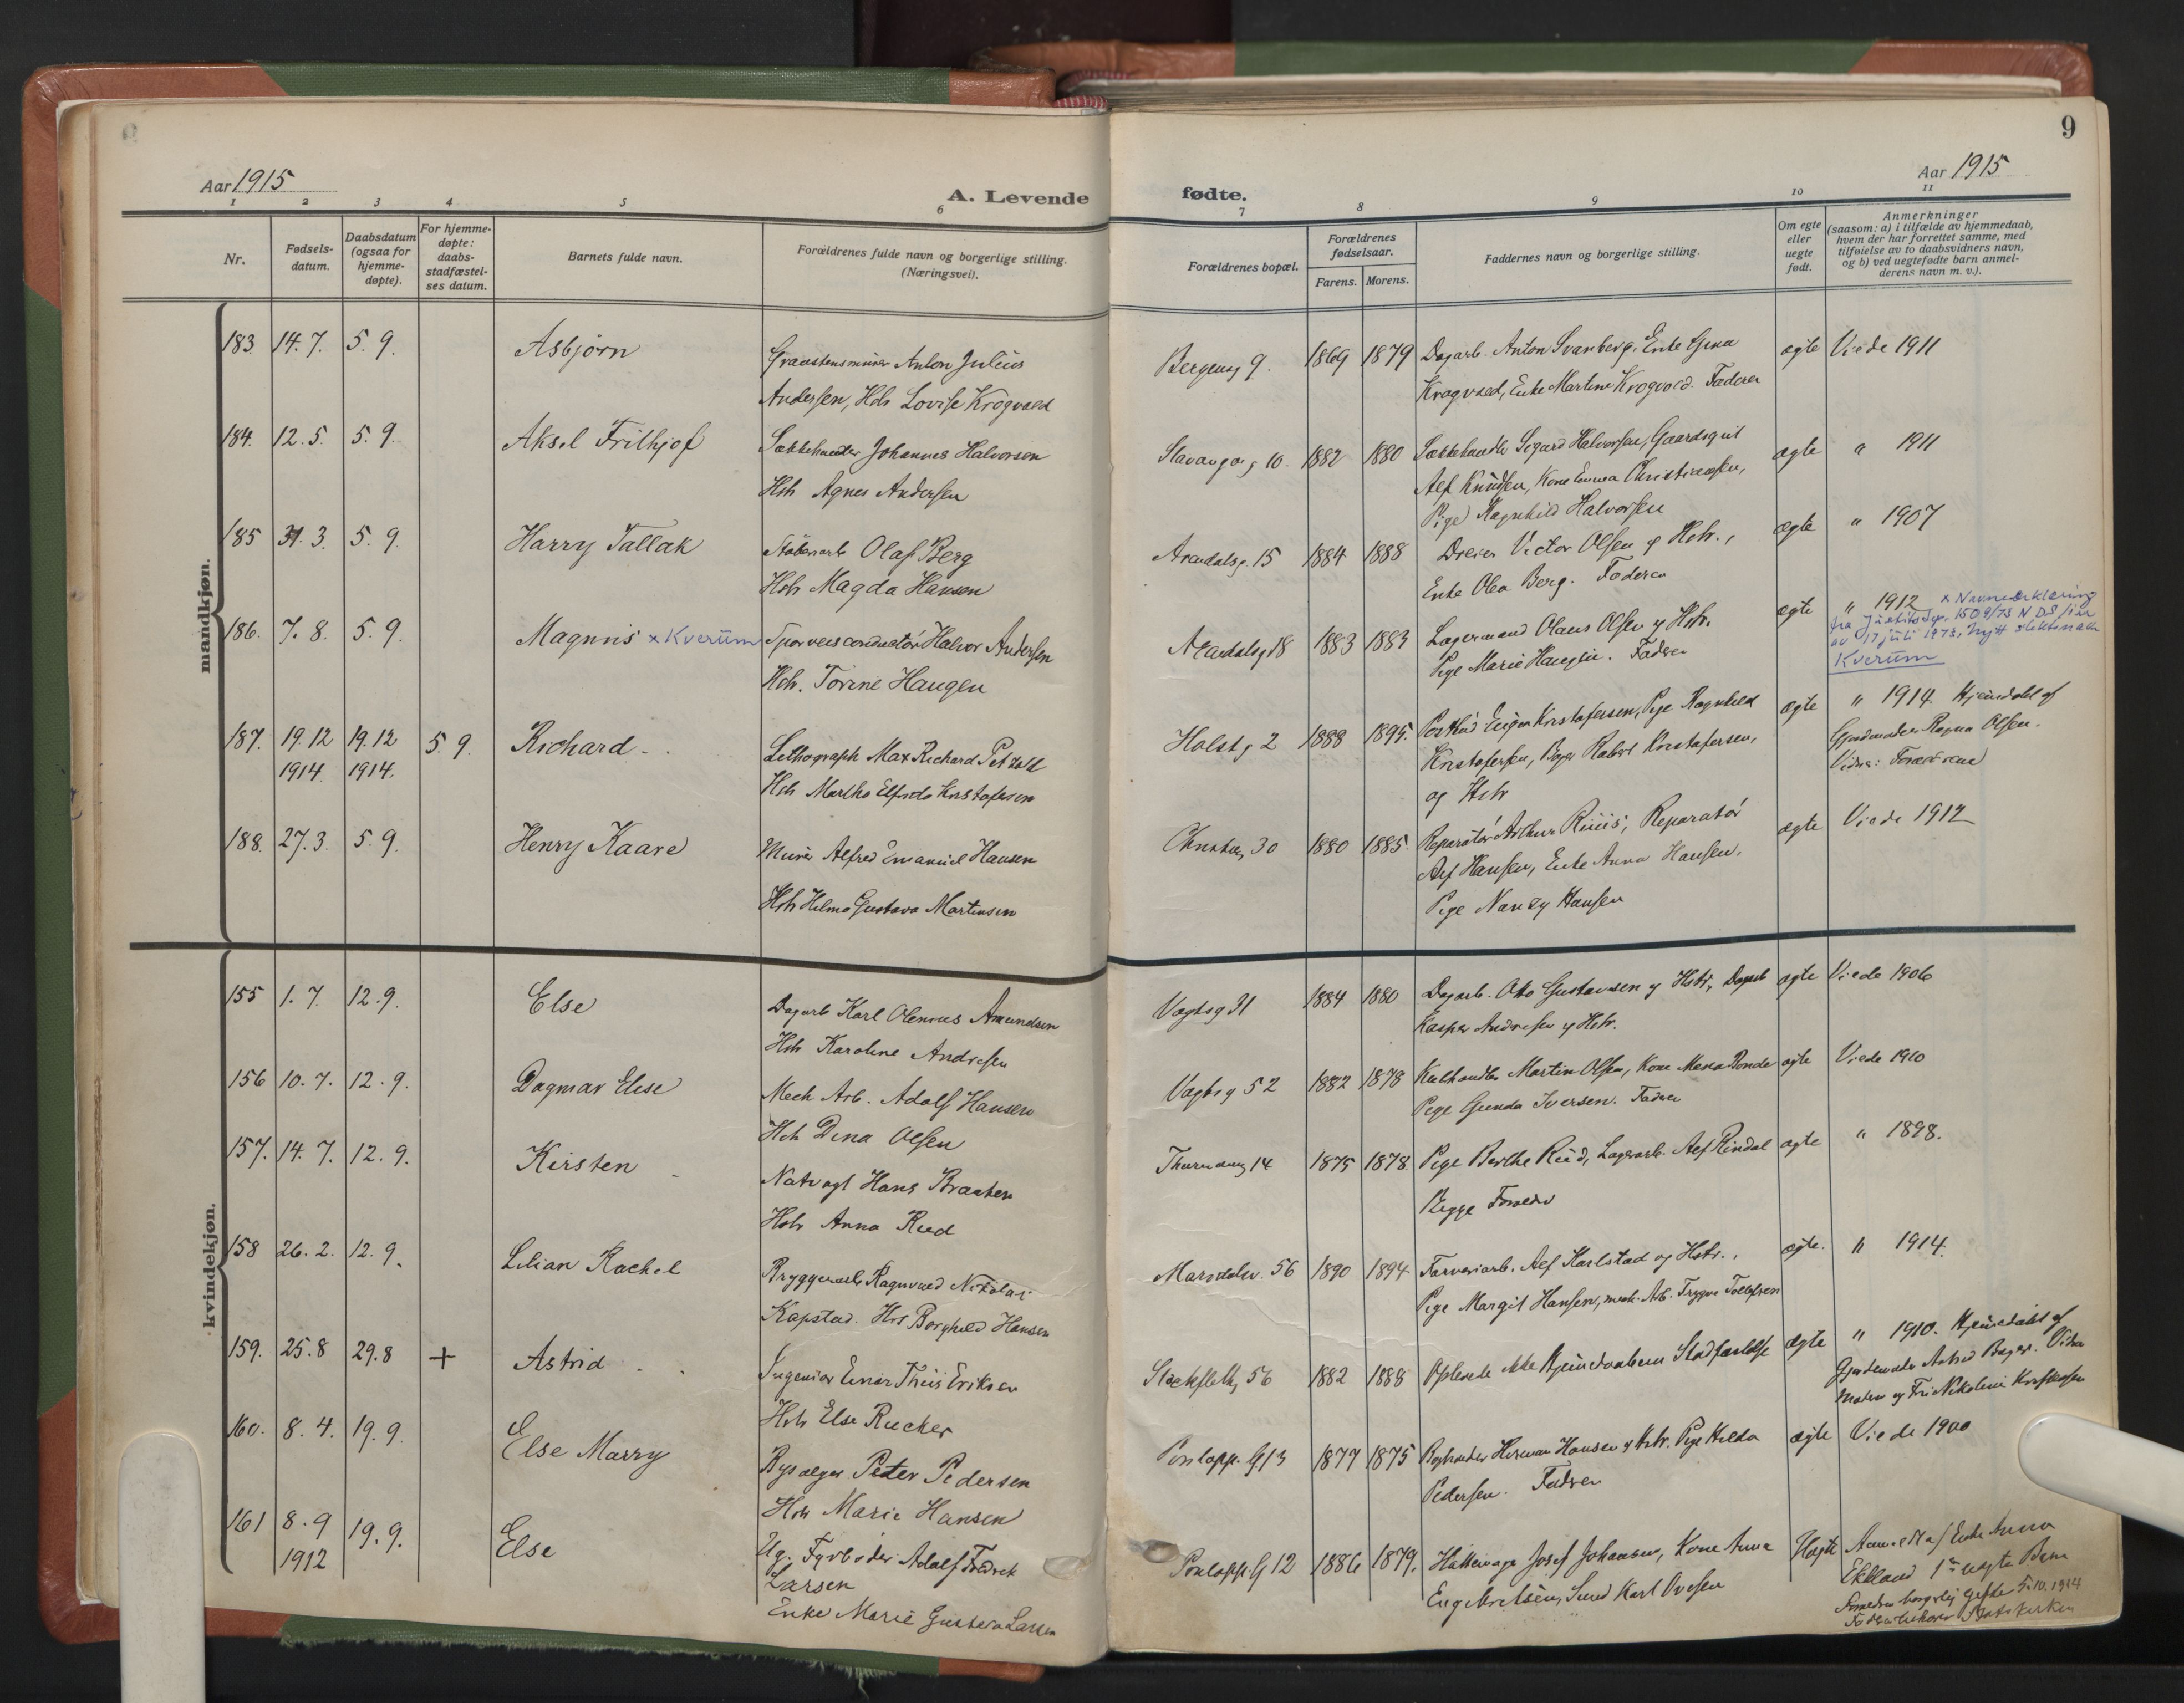 Aar 1915
A. Levende
1 2 3 4 5 6
Nr.
Fødsels-
datum.
Daabsdatum
(ogsaa for
hjemme-
døpte).
For hjemme-
døpte:
daabs-
stadfæstel-
ses datum.
Barnets fulde navn.
Forældrenes fulde navn og borgerlige stilling.
(Næringsvei).
mandkjøn.
183 14. 7. 5. 9. Asbjørn
Graastensmurer Anton Julius
Andersen, Hstr Lovise Krogvold
184. 12. 5. 5. 9. Aksel Frithjof
Johannes Halvorsen
Hstr Agnes Andersen
185 31. 3. 5. 9. Harry Tallak
Olaf Berg
Hstr Magda Hansen
186. 7. 8. 5. 9. Magnus x Kverum
Sporveisconductør Halvor Andersen
Hstr. Torine Haugen
187. 19. 12 19. 12 5. 9. Richard
1914 1914.
Lithograph Max Richard Petzold
Hstr Martha Elfrida Kristofersen
188. 27. 3. 5. 9. Henry Kaare
Murer Alfred Emanuel Hansen
Hstr Hilma Gustava Martinsen
kvindekjøn.
155 1. 7. 12. 9. Else
Dagarb Karl Olenius Amundsen
Hstr Karoline Andresen
156 10. 7. 12. 9. Dagmar Elise
Mech Arb. Adolf Hansen
Hstr Dina Olsen
157. 14. 7. 12. 9. Kirsten
Natvagt Hans Braaten
Hstr Anna Rud
158 26. 2. 12. 9. Lilian Rachel
Bryggeriarb Ragnvald Nikolai
Kapstad. Hstr Borghild Hansen
159. 25. 8 29. 8 + Astrid
Ingeniør Einar Theis Eriksen
Hstr Else Rucker
160. 8. 4. 19. 9. Else Marry
Peter Pedersen
Hstr Marie Hansen
161 8. 9 19. 9. Else
1912
Ug. Fyrbøder Adolf Fredrik
Larsen
Enke Marie Gustava Larsen
9
Aar 1915
fødte.
7 8 9 10 11
Forældrenes bopæl.
Forældrenes
fødselsaar.
Farens. Morens.
Faddernes navn og borgerlige stilling.
Om egte
eller
uegte
født.
Anmerkninger
(saasom: a) i tilfælde av hjemmedaab,
hvem der har forrettet samme, med
tilføielse av to daabsvidners navn,
og b) ved uegtefødte barn anmel-
derens navn m. v.).
Bergensg 9. 1869 1879 Dagarb. Anton Svanberg, Enke Gina ægte Viede 1911
Krogvold, Enke Martine Krogvold. Faderen
Stavangerg 10. 1882 1880 Sigurd Halvorsen, Gaardsgut ægte " 1911
Alf Knudsen, Kone Emma Christiansen,
Pige Ragnhild Halvorsen
Arendalsg. 15 1884 1888 Dreier Victor Olsen og Hstr., ægte " 1907
Enke Olea Berg. Faderen
Arendalsg 18 1883 1883 Lagermand Olaus Olsen og Hstr. ægte " 1912 x Navneerklæring
Pige Marie Haugen. Faderen
fra Justitsdep. 1509/73
av 17 juli 1973, nytt slektsnavn
Kverum
Holstg 2 1888 1895. Kristofersen, Pige Ragnhild ægte " 1914. Hjemdøbt af
Kristofersen, Robert Kristofersen,
og Hstr
Gjordemoder Ragna Olsen.
Vidner: Forældrene
30 1880 1885. Reparatør Arthur Riiis, Reparatør ægte Viede 1912
Alf Hansen, Enke Anna Hansen.
Pige Nanzy Hansen
Vogtsg 31 1884 1880 Dagarb. Otto Gustavsen og Hstr, Dagarb ægte Viede 1906
Kasper Andresen og Hstr.
Vogtsg 52 1882 1878 Kulhandler Martin Olsen, Kone Maria Bonde ægte Viede 1910
Pige Gunda Iversen. Faderen
14 1875 1878 Pige Berthe Rud, Lagerarb. Alf Rindal ægte " 1898.
Begge Forældre
Maridalsv. 56 1890 1894 Farveriarb. Alf Karlstad og Hstr., ægte. " 1914.
Pige Margit Hansen, mek. Arb. Trygve Tollefsen
Stockfletsg 56 1882 1888 Oplevede ikke Hjemdaabens Stadfæstelse ægte " 1910. Hjemdøbt af
Gjordemoder Astrid Vidner
Moderen og Nikoline
13 1877 1875 Herman Hansen og Hstr. Pige Hilda ægte Viede 1900
Pedersen. Faderen
12 1886 1879. Josef Johansen, Kone Anna Uægte Anmeldt af Enke Anna
Karl Ovesen
Ekeland 1ste uægte Barn
Forældrene borgerlig gifte 5.10.1914
Statskirken